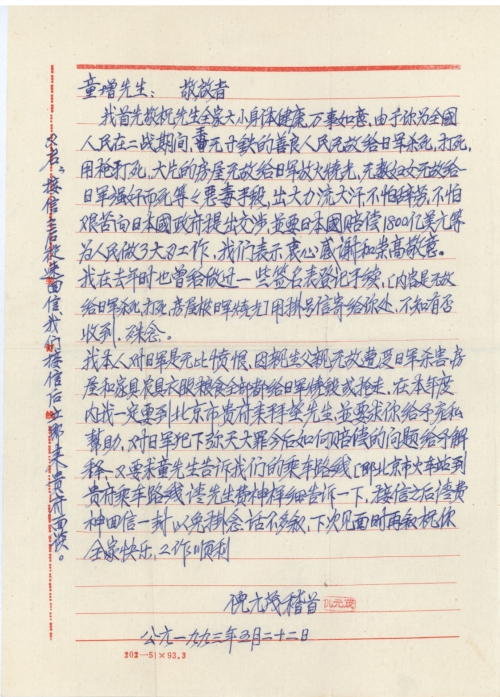 童增先生：敬啟者
我首先敬祝先生全家大小身体健康，万事如意，由于你为全國
人民在二战期间，手无寸铁的善良人民无故给日军杀死，打死，
用枪打死，大片的房屋无故给日军放火烧光，无数妇女无故给
日军强奸而死等之恶毒手段，出大力流大汗，不怕辞劳，不怕
艰苦向日本國政府提出交涉，並要日本國赔偿1800亿美元等
为人民做了大力工作，我们表示衷心感谢和崇高敬意。
我在去年时也曾给做过一些签名表登记手续，〔内容是无故
给日军杀死，打死，房屋被日军烧光〕用掛号信寄给你处，不知有否
收到，殊念。
我本人对日军是无比愤恨，因我生父亲无故遭受日军杀害，房
屋和家具农具衣服粮食全部都给日军烧毁或抢走，在本年度
内我一定要到北京市贵府来拜望先生，並要求你给予大力
幫助，对日军犯下弥天大罪今后如何赔偿的问题给予解
释，又要求童先生告诉我们的乘车路线〔那北京市火车站到
贵府乘车路线〕请先生费神详细告诉一下，接信之后请费
神回信一封，以免掛念，话不多叙，下次见面时再叙，祝你
全家快乐，工作顺利
倪元茂稽首
公元一九九三年3月二十二日
202—51×93.3
又者：接信之后从速回信，我们接信后立即来贵府面谈。